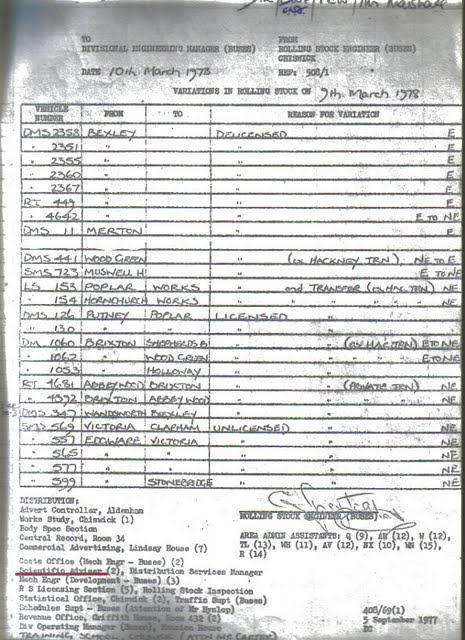 TO FROM
DIVISIONAL ENGINEERING MANAGER (BUSES) ROLLING STOCK ENGINEER (BUSES)
CHISWICK
DATE 10th March 1978 REF: 508/1
VARIATIONS IN ROLLING STOCK ON 9th March 1978
VEHICLE NUMBER FROM TO REASON FOR VARIATION
DMS 2358 BEXLEY DELICENSED E
" 2351 " " E
" 2355 " " E
" 2360 " " E
" 2367 " " E
RT 449 " " E
" 4642 " " E TO NE
DMS 11 MERTON " E
DMS 441 WOOD GREEN " (EX HACKNEY TRN) NE TO E
SMS 723 MUSWELL H " E TO NE
LS 153 POPLAR WORKS " and TRANSFER (ex HAC. TRN) NE
" 154 HORNCHURCH WORKS " " " NE
DMS 126 PUTNEY POPLAR LICENSED "
" 130 " " " "
DM 1060 BRIXTON SHEPHERDS B " " (EX HAC. TRN) E TO NE
" 1062 " WOOD GREEN " " E TO NE
" 1053 " HOLLOWAY " "
RT 4681 ABBEYWOOD BRIXTON " " (PRIVATE TRN) NE
" 4392 BRIXTON ABBEYWOOD " " " NE
DMS 347 WANDSWORTH BEXLEY " "
SMS 569 VICTORIA CLAPHAM UNLICENSED " NE
" 557 EDGWARE VICTORIA " " NE
" 565 " " " " NE
" 577 " " " " NE
" 599 STONEBRIDGE " " NE
DISTRIBUTION:
Advert Controller, Aldenham
Works Study, Chiswick (1)
ROLLING STOCK ENGINEER (BUSES)
Body Spec Section
Central Record, Room 34
Commercial Advertising, Lindsay House (7)
AREA ADMIN ASSISTANTS: Q (9), W (12),
TL (13), WH (11), AV (12), NX (10), WN (15),
R (14)
Costs Office (Mech Engr - Buses) (2)
Scientific Adviser (2), Distribution Services Manager
Mech Engr (Development - Buses) (3)
R S Licensing Section (5), Rolling Stock Inspection
Statistical Office, Chiswick (2), Traffic Supt (Buses)
Schedules Supt - Buses (Attention of Mr Hyslop)
408/69(1)
Revenue Office, Griffith House, Room 432 (2)
5 September 1977
Div Operating Manager (Buses), House
TRAINING SCHOOL (ATTN MR CARTER)